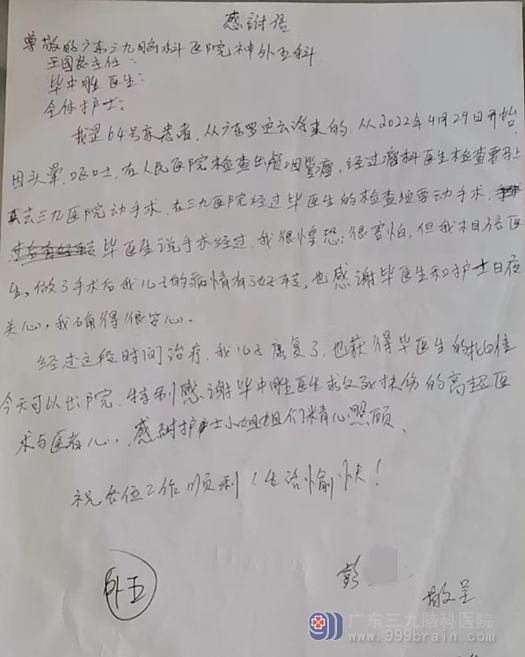 感謝语
尊敬的广东三九脑科医院神外五科
王国良主任:
毕中胜医生:
全体护士:
我是64号床患者,从广东罗定云浮来的,从2022年4月29日开始
因头晕,呕吐,在人民医院检查出颅咽管瘤,经过瘤科医生检查要马上
去三九医院动手术,在三九医院经过毕医生的检查须要动手术,
毕医生说手术经过,我很惶恐,很害怕,但我相信医
生,做了手术后我儿子的病情有了好转,也感谢毕医生和护士日夜
关心,我确得很安心。
经过这段时间治疗,我儿子康复了,也获得毕医生的批准
今天可以出院,特别感谢毕中胜医生救死扶伤的高超医
术与医者心,感謝护士小姐姐们精心照顾,
祝各位工作顺利!生活愉快!
外五
彭
敬呈
广东三九脑科医院
www.999brain.com